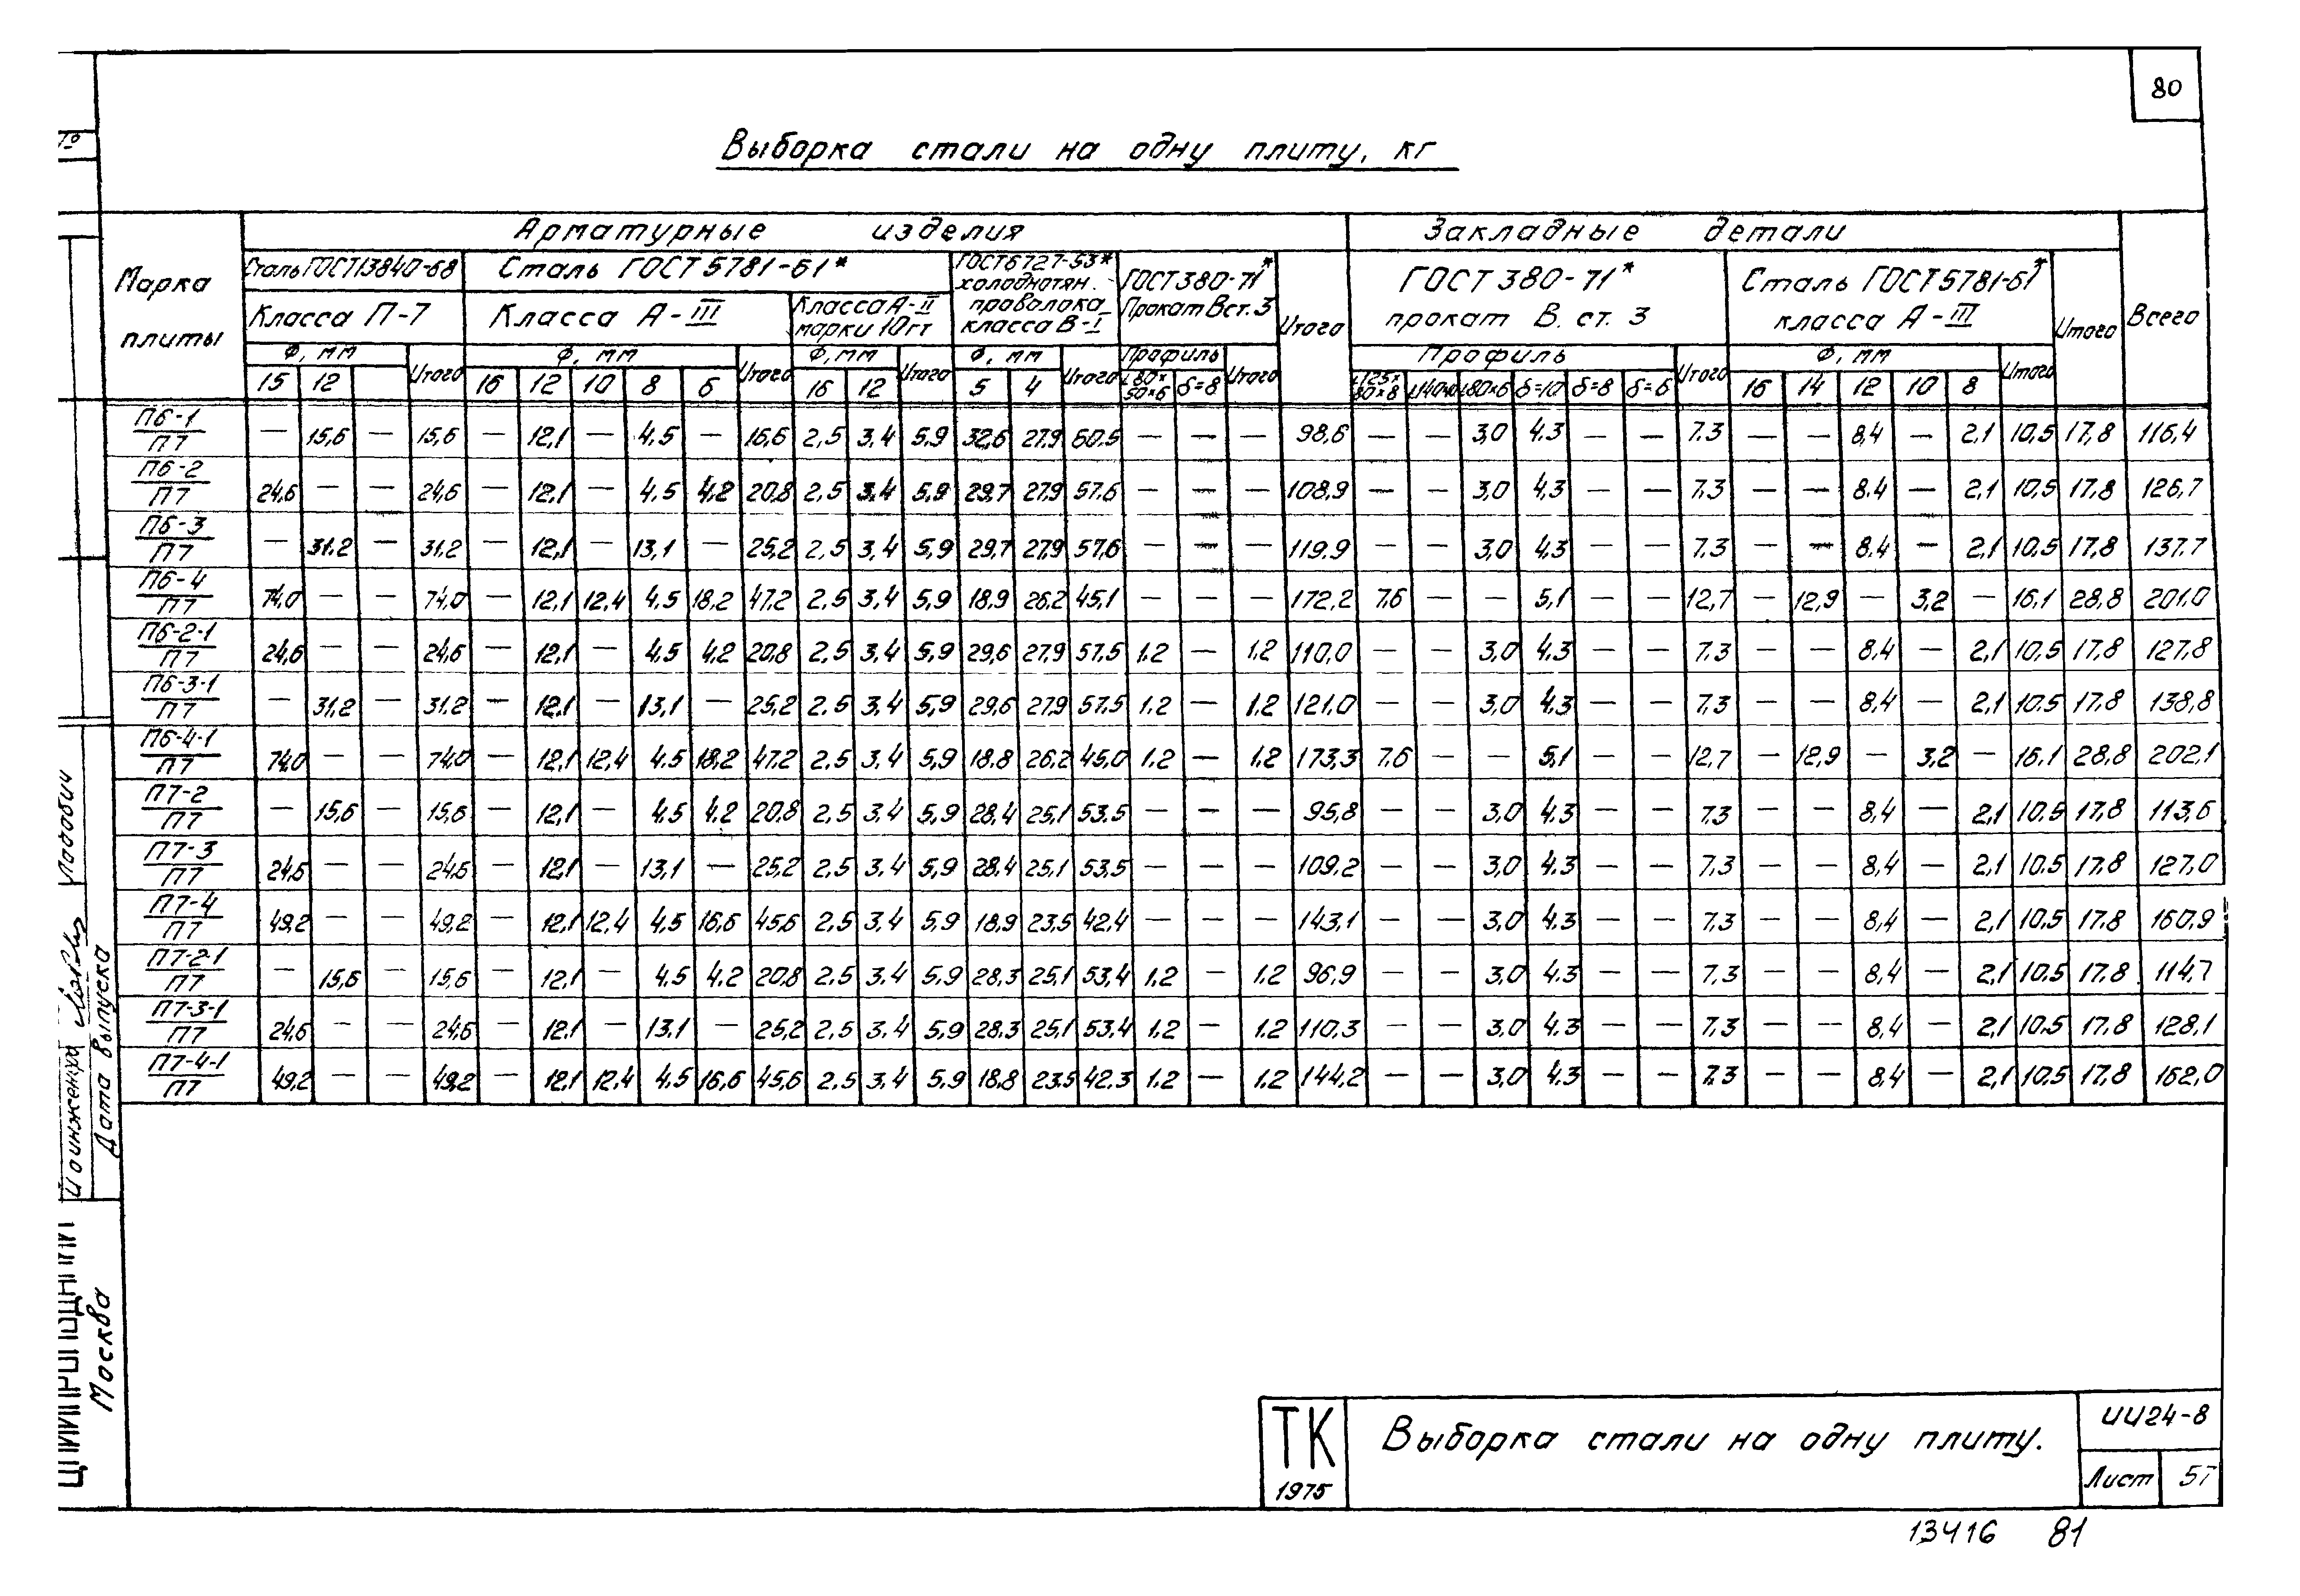 80
Выборка стали на одну плиту, кг
Марка плиты
Арматурные изделия
Закладные детали
Всего
Сталь ГОСТ 13840-68
Сталь ГОСТ 5781-61*
ГОСТ 6727-53* холоднотян. проволока класса В-I
ГОСТ 380-71* Прокат В ст. 3
Итого
ГОСТ 380-71* прокат В. ст. 3
Сталь ГОСТ 5781-61* класса А-III
Итого
Класса П-7
Класса А-III
Класса А-II марки 10ГТ
Ф, мм Итого Ф, мм Итого Ф, мм Итого Ф, мм Итого Профиль Итого Профиль Итого Ф, мм Итого
15 12 16 12 10 8 6 16 12 5 4 L80×50×6 δ=8 L125×80×8 L140×10 L80×6 δ=10 δ=8 δ=6 16 14 12 10 8
П6-1/П7 — 15,6 — 15,6 — 12,1 — 4,5 — 16,6 2,5 3,4 5,9 32,6 27,9 60,5 — — — 98,6 — — 3,0 4,3 — — 7,3 — — 8,4 — 2,1 10,5 17,8 116,4
П6-2/П7 24,6 — — 24,6 — 12,1 — 4,5 4,2 20,8 2,5 3,4 5,9 29,7 27,9 57,6 — — — 108,9 — — 3,0 4,3 — — 7,3 — — 8,4 — 2,1 10,5 17,8 126,7
П6-3/П7 — 31,2 — 31,2 — 12,1 — 13,1 — 25,2 2,5 3,4 5,9 29,7 27,9 57,6 — — — 119,9 — — 3,0 4,3 — — 7,3 — — 8,4 — 2,1 10,5 17,8 137,7
П6-4/П7 74,0 — — 74,0 — 12,1 12,4 4,5 18,2 47,2 2,5 3,4 5,9 18,9 26,2 45,1 — — — 172,2 7,6 — — 5,1 — — 12,7 — 12,9 — 3,2 — 16,1 28,8 201,0
П6-2-1/П7 24,6 — — 24,6 — 12,1 — 4,5 4,2 20,8 2,5 3,4 5,9 29,6 27,9 57,5 1,2 — 1,2 110,0 — — 3,0 4,3 — — 7,3 — — 8,4 — 2,1 10,5 17,8 127,8
П6-3-1/П7 — 31,2 — 31,2 — 12,1 — 13,1 — 25,2 2,5 3,4 5,9 29,6 27,9 57,5 1,2 — 1,2 121,0 — — 3,0 4,3 — — 7,3 — — 8,4 — 2,1 10,5 17,8 138,8
П6-4-1/П7 74,0 — — 74,0 — 12,1 12,4 4,5 18,2 47,2 2,5 3,4 5,9 18,8 26,2 45,0 1,2 — 1,2 173,3 7,6 — — 5,1 — — 12,7 — 12,9 — 3,2 — 16,1 28,8 202,1
П7-2/П7 — 15,6 — 15,6 — 12,1 — 4,5 4,2 20,8 2,5 3,4 5,9 28,4 25,1 53,5 — — — 95,8 — — 3,0 4,3 — — 7,3 — — 8,4 — 2,1 10,5 17,8 113,6
П7-3/П7 24,6 — — 24,6 — 12,1 — 13,1 — 25,2 2,5 3,4 5,9 28,4 25,1 53,5 — — — 109,2 — — 3,0 4,3 — — 7,3 — — 8,4 — 2,1 10,5 17,8 127,0
П7-4/П7 49,2 — — 49,2 — 12,1 12,4 4,5 16,6 45,6 2,5 3,4 5,9 18,9 23,5 42,4 — — — 143,1 — — 3,0 4,3 — — 7,3 — — 8,4 — 2,1 10,5 17,8 160,9
П7-2-1/П7 — 15,6 — 15,6 — 12,1 — 4,5 4,2 20,8 2,5 3,4 5,9 28,3 25,1 53,4 1,2 — 1,2 96,9 — — 3,0 4,3 — — 7,3 — — 8,4 — 2,1 10,5 17,8 114,7
П7-3-1/П7 24,6 — — 24,6 — 12,1 — 13,1 — 25,2 2,5 3,4 5,9 28,3 25,1 53,4 1,2 — 1,2 110,3 — — 3,0 4,3 — — 7,3 — — 8,4 — 2,1 10,5 17,8 128,1
П7-4-1/П7 49,2 — — 49,2 — 12,1 12,4 4,5 16,6 45,6 2,5 3,4 5,9 18,8 23,5 42,3 1,2 — 1,2 144,2 — — 3,0 4,3 — — 7,3 — — 8,4 — 2,1 10,5 17,8 162,0
Дата выпуска
Москва
ТК
1975
Выборка стали на одну плиту.
ИИ24-8
Лист 57
13416 81